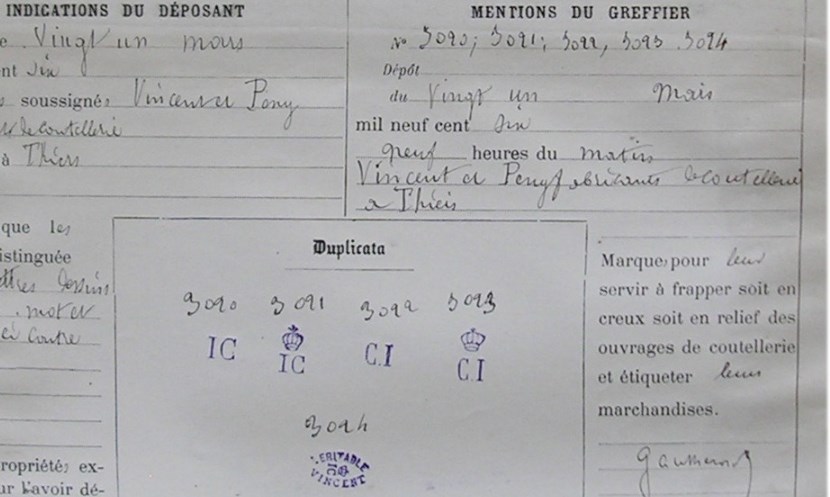 INDICATIONS DU DÉPOSANT
e Vingt un mars
nt dix
soussignés Vincent et Peny
de coutellerie
à Thiers
MENTIONS DU GREFFIER
No 3090; 3091; 3092, 3093 3094
Dépôt
du Vingt un Mars
mil neuf cent dix
neuf heures du matin
Vincent et Peny fabricants de coutellerie
a Thiers
que les
istinguée
ttres dessins
mot et
ci contre
ropriétés ex-
ur l'avoir dé-
Duplicata
3090 3091 3092 3093
IC IC C.I C.I
3094
VERITABLE
VINCENT
Marques pour leur
servir à frapper soit en
creux soit en relief des
ouvrages de coutellerie
et étiqueter leurs
marchandises.